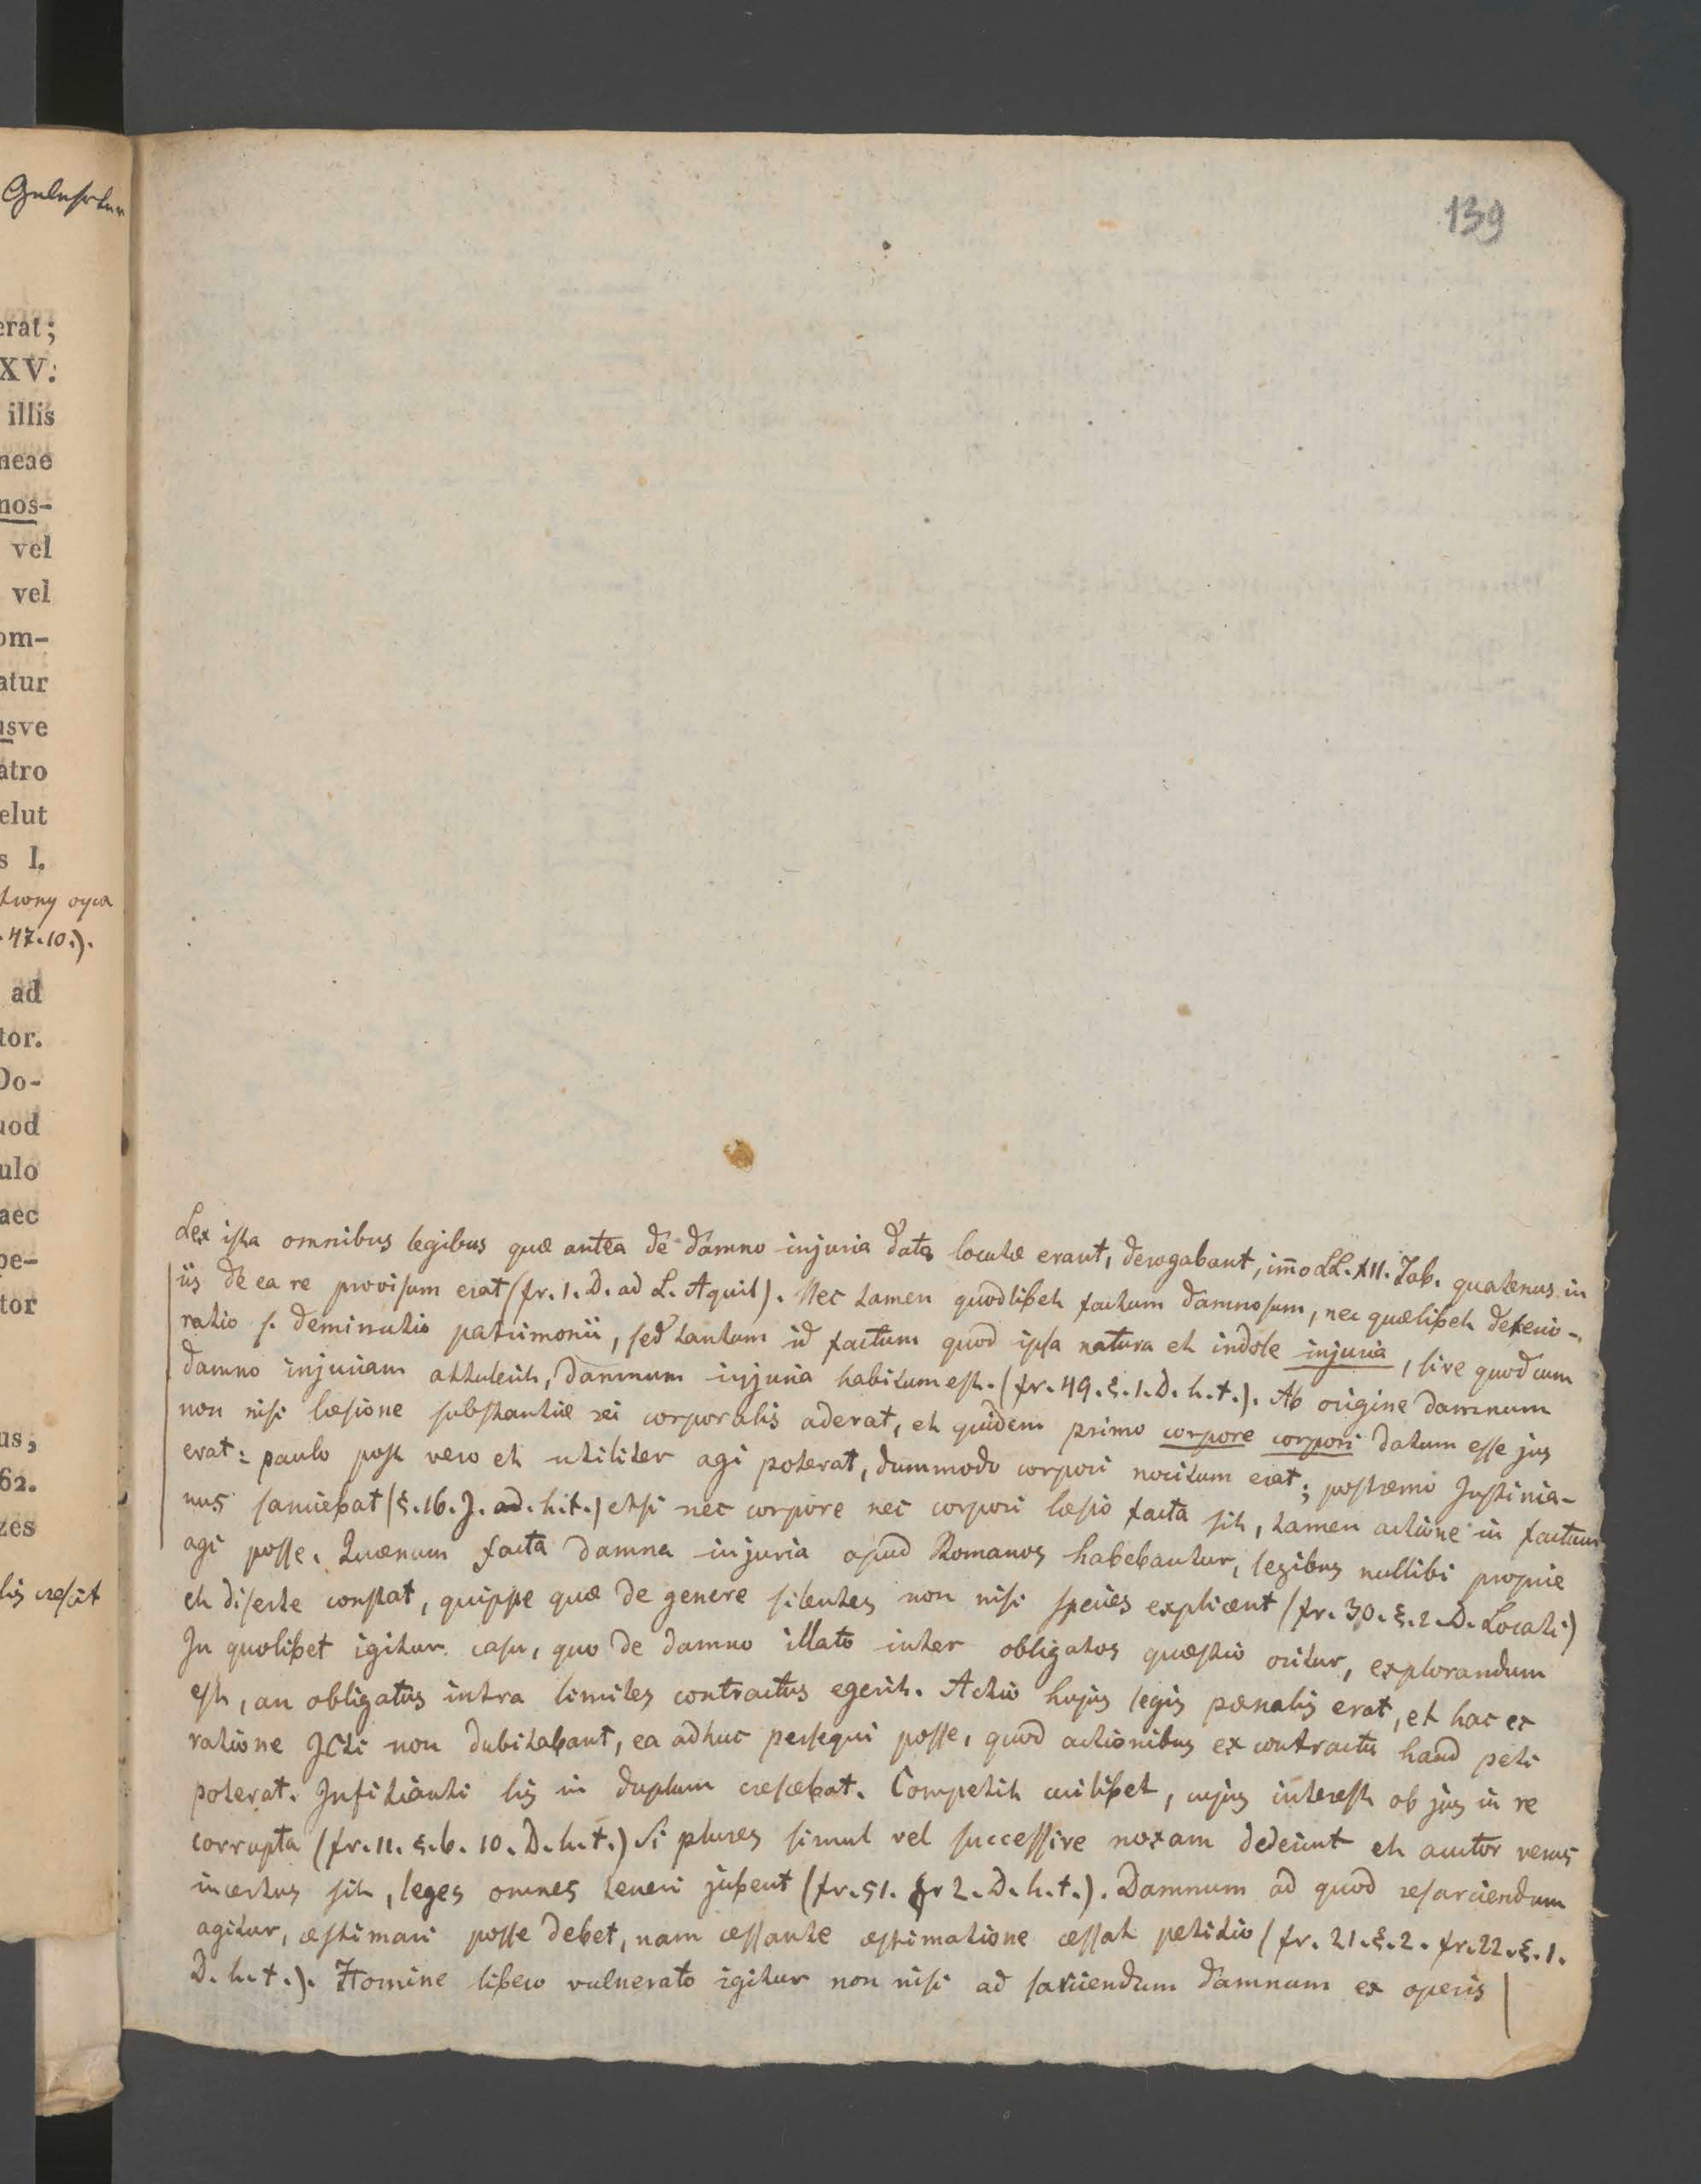 139
erat;
XV.
illis
neae
nos-
vel
vel
om-
atur
usve
atro
elut
s I.
47.10.).
ad
tor.
Do-
uod
ulo
aec
pe-
tor
us,
62.
zes
lis crescit
Lex ista omnibus legibus quæ antea de damno injuria dato locutæ erant, derogabant, im̄o LL. XII. Tab. quatenus in
iis de ea re provisum erat (fr. 1. D. ad L. Aquil). Nec tamen quodlibet factum damnosum, nec quælibet deterio-
ratio s. deminutio patrimonii, sed tantum id factum quod ipsa natura et indole injuria, sive quod cum
damno injuriam attulerit, damnum injuria habitum est. (fr. 49. §. 1. D. h. t.). Ab origine damnum
non nisi læsione substantiæ rei corporalis aderat, et quidem primo corpore corpori datum esse jus
erat: paulo post vero et utiliter agi poterat, dummodo corpori nocitum erat; postremo Justinia-
nus sanciebat (§. 16. J. ad. h. t.) etsi nec corpore nec corpori læsio facta sit, tamen actione in factum
agi posse. Quænam facta damna injuria apud Romanos habebantur, legibus nullibi proprie
et diserte constat, quippe quæ de genere silentes non nisi species explicent (fr. 30. §. 2. D. Locati)
In quolibet igitur casu, quo de damno illato inter obligatos quæstio oritur, explorandum
est, an obligatus intra limites contractus egerit. Actio hujus legis pœnalis erat, et hac ex
ratione JCti non dubitabant, ea adhuc persequi posse, quod actionibus ex contractu haud peti
poterat. Infitianti lis in duplum crescebat. Competit cuilibet, cujus interest ob jus in re
corrupta (fr. 11. §. 6. 10. D. h. t.) Si plures simul vel successive noxam dederint et auctor verus
incertus sit, leges omnes teneri jubent (fr. 51. fr 2. D. h. t.). Damnum ad quod resarciendum
agitur, æstimari posse debet, nam cessante æstimatione cessat petitio (fr. 21. §. 2. fr. 22. §. 1.
D. h. t.). Homine libero vulnerato igitur non nisi ad sarciendum damnum ex operis